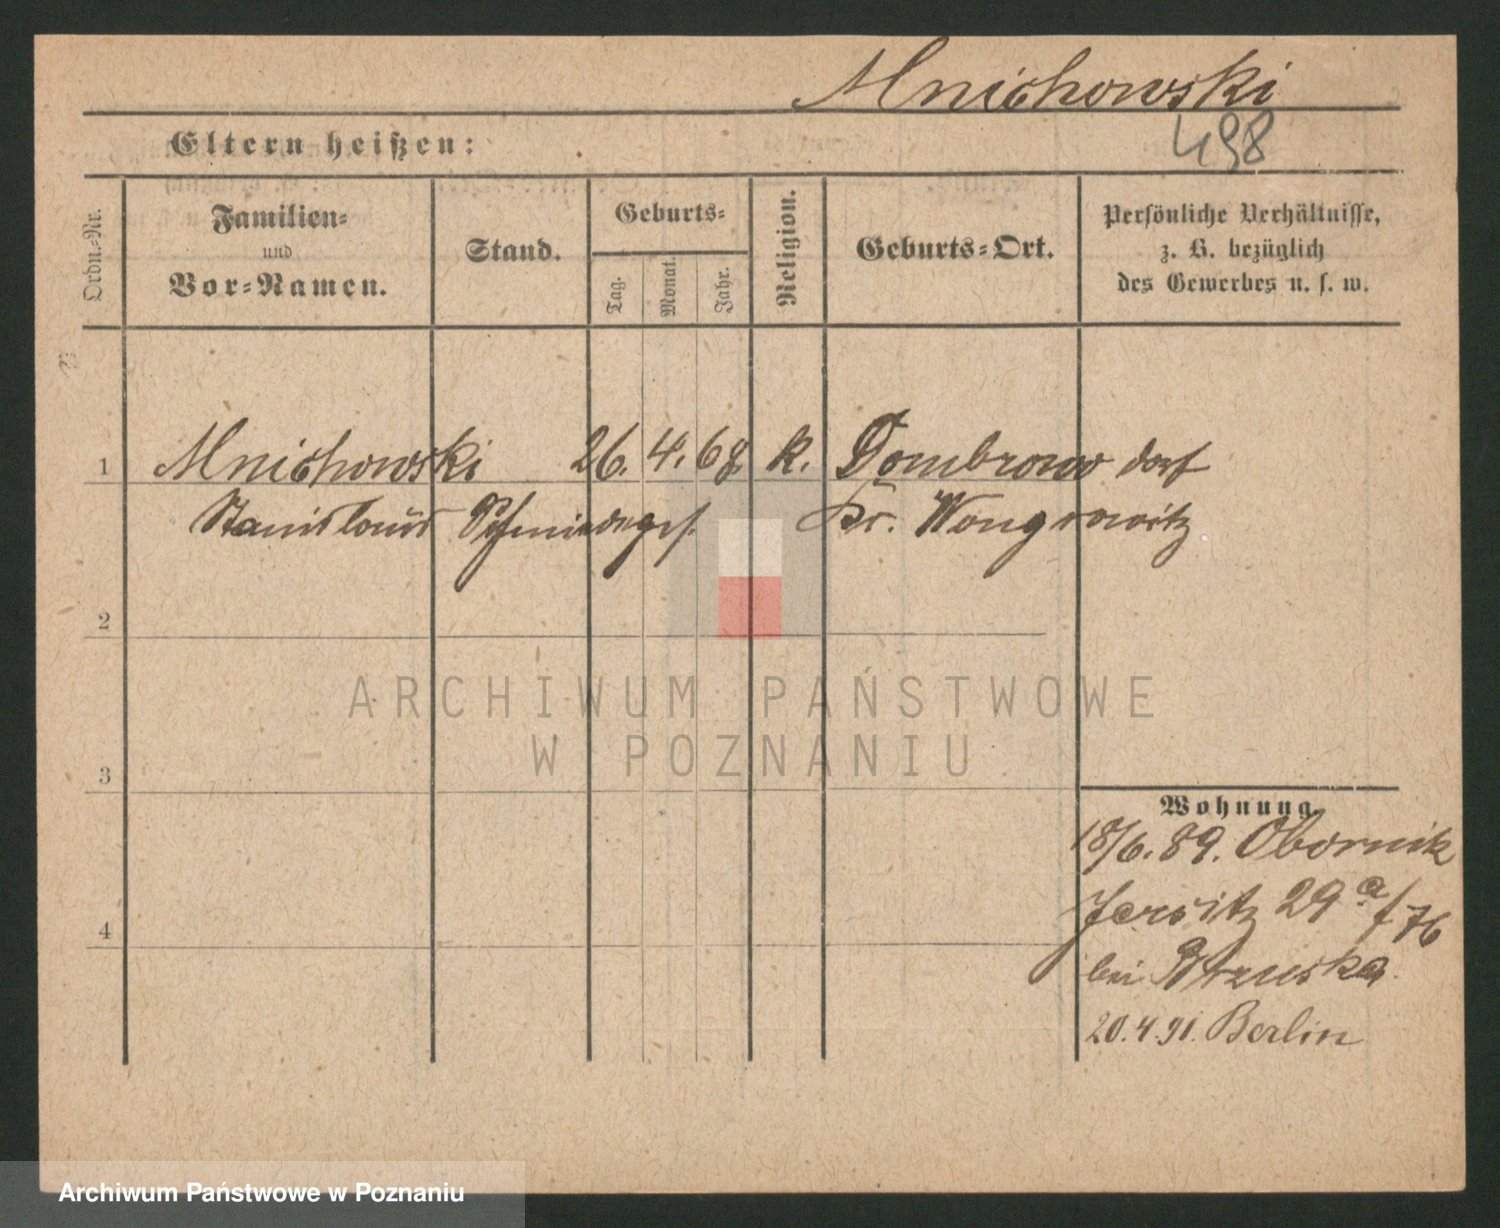 Mnichowski
498
Eltern heißen:
Ordn.-Nr.
Familien-
und
Vor-Namen.
Stand.
Geburts-
Tag.
Monat.
Jahr.
Religion.
Geburts-Ort.
Persönliche Verhältnisse,
z. B. bezüglich
des Gewerbes u. s. w.
1 Mnichowski 26. 4. 68. k. Dombrowo dorf
Stanislaus Schmiedeges. Kr. Wongrowitz
2
ARCHIWUM PAŃSTWOWE
W POZNANIU
3
Wohnung
18/6. 89. Obornik
Jersitz 29a/76
4
bei Brzuska
20.4.91. Berlin
Archiwum Państwowe w Poznaniu